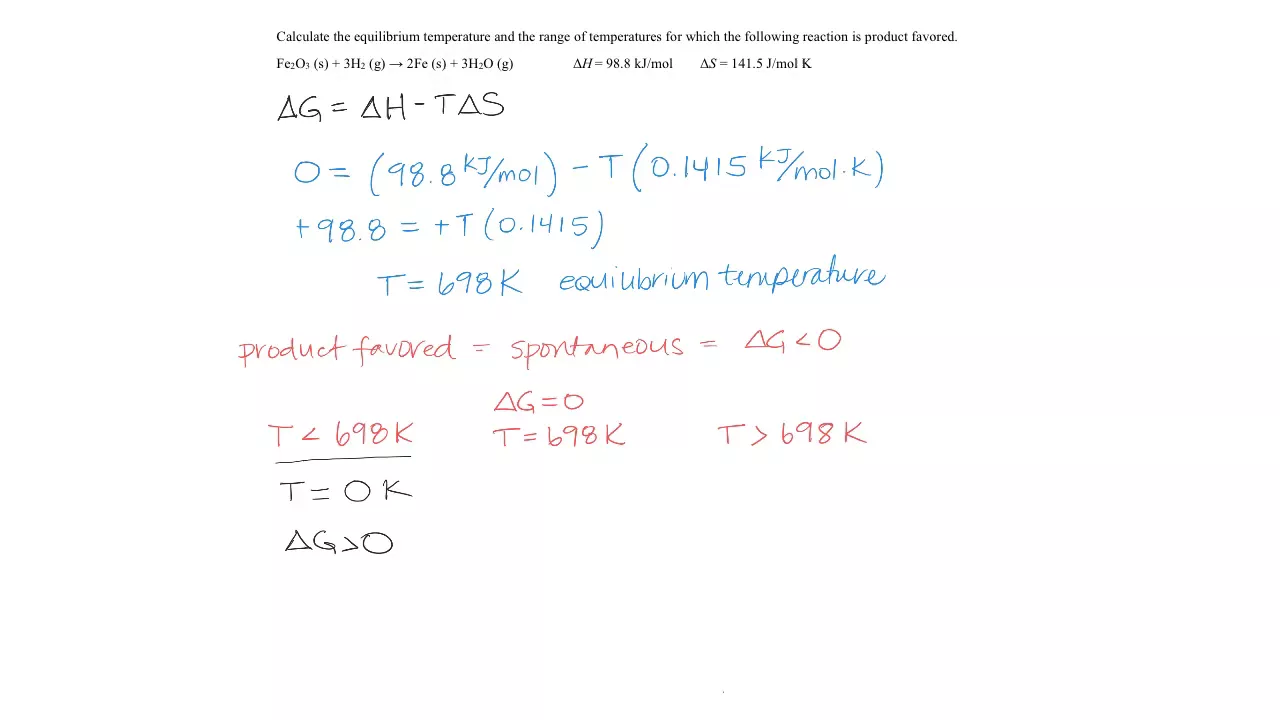 Calculate the equilibrium temperature and the range of temperatures for which the following reaction is product favored.
Fe₂O₃ (s) + 3H₂ (g) → 2Fe (s) + 3H₂O (g) ΔH = 98.8 kJ/mol ΔS = 141.5 J/mol K
ΔG = ΔH - TΔS
0 = (98.8 kJ/mol) - T(0.1415 kJ/mol·K)
+98.8 = +T(0.1415)
T = 698 K equilibrium temperature
product favored = spontaneous = ΔG < 0
ΔG = 0
T < 698 K T = 698 K T > 698 K
T = 0 K
ΔG > 0